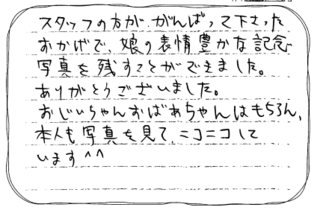 スタッフの方が、がんばって下さった
おかげで、娘の表情豊かな記念
写真を残すことができました。
ありがとうございました。
おじいちゃんおばあちゃんはもちろん、
本人も写真を見て、ニコニコして
います^^